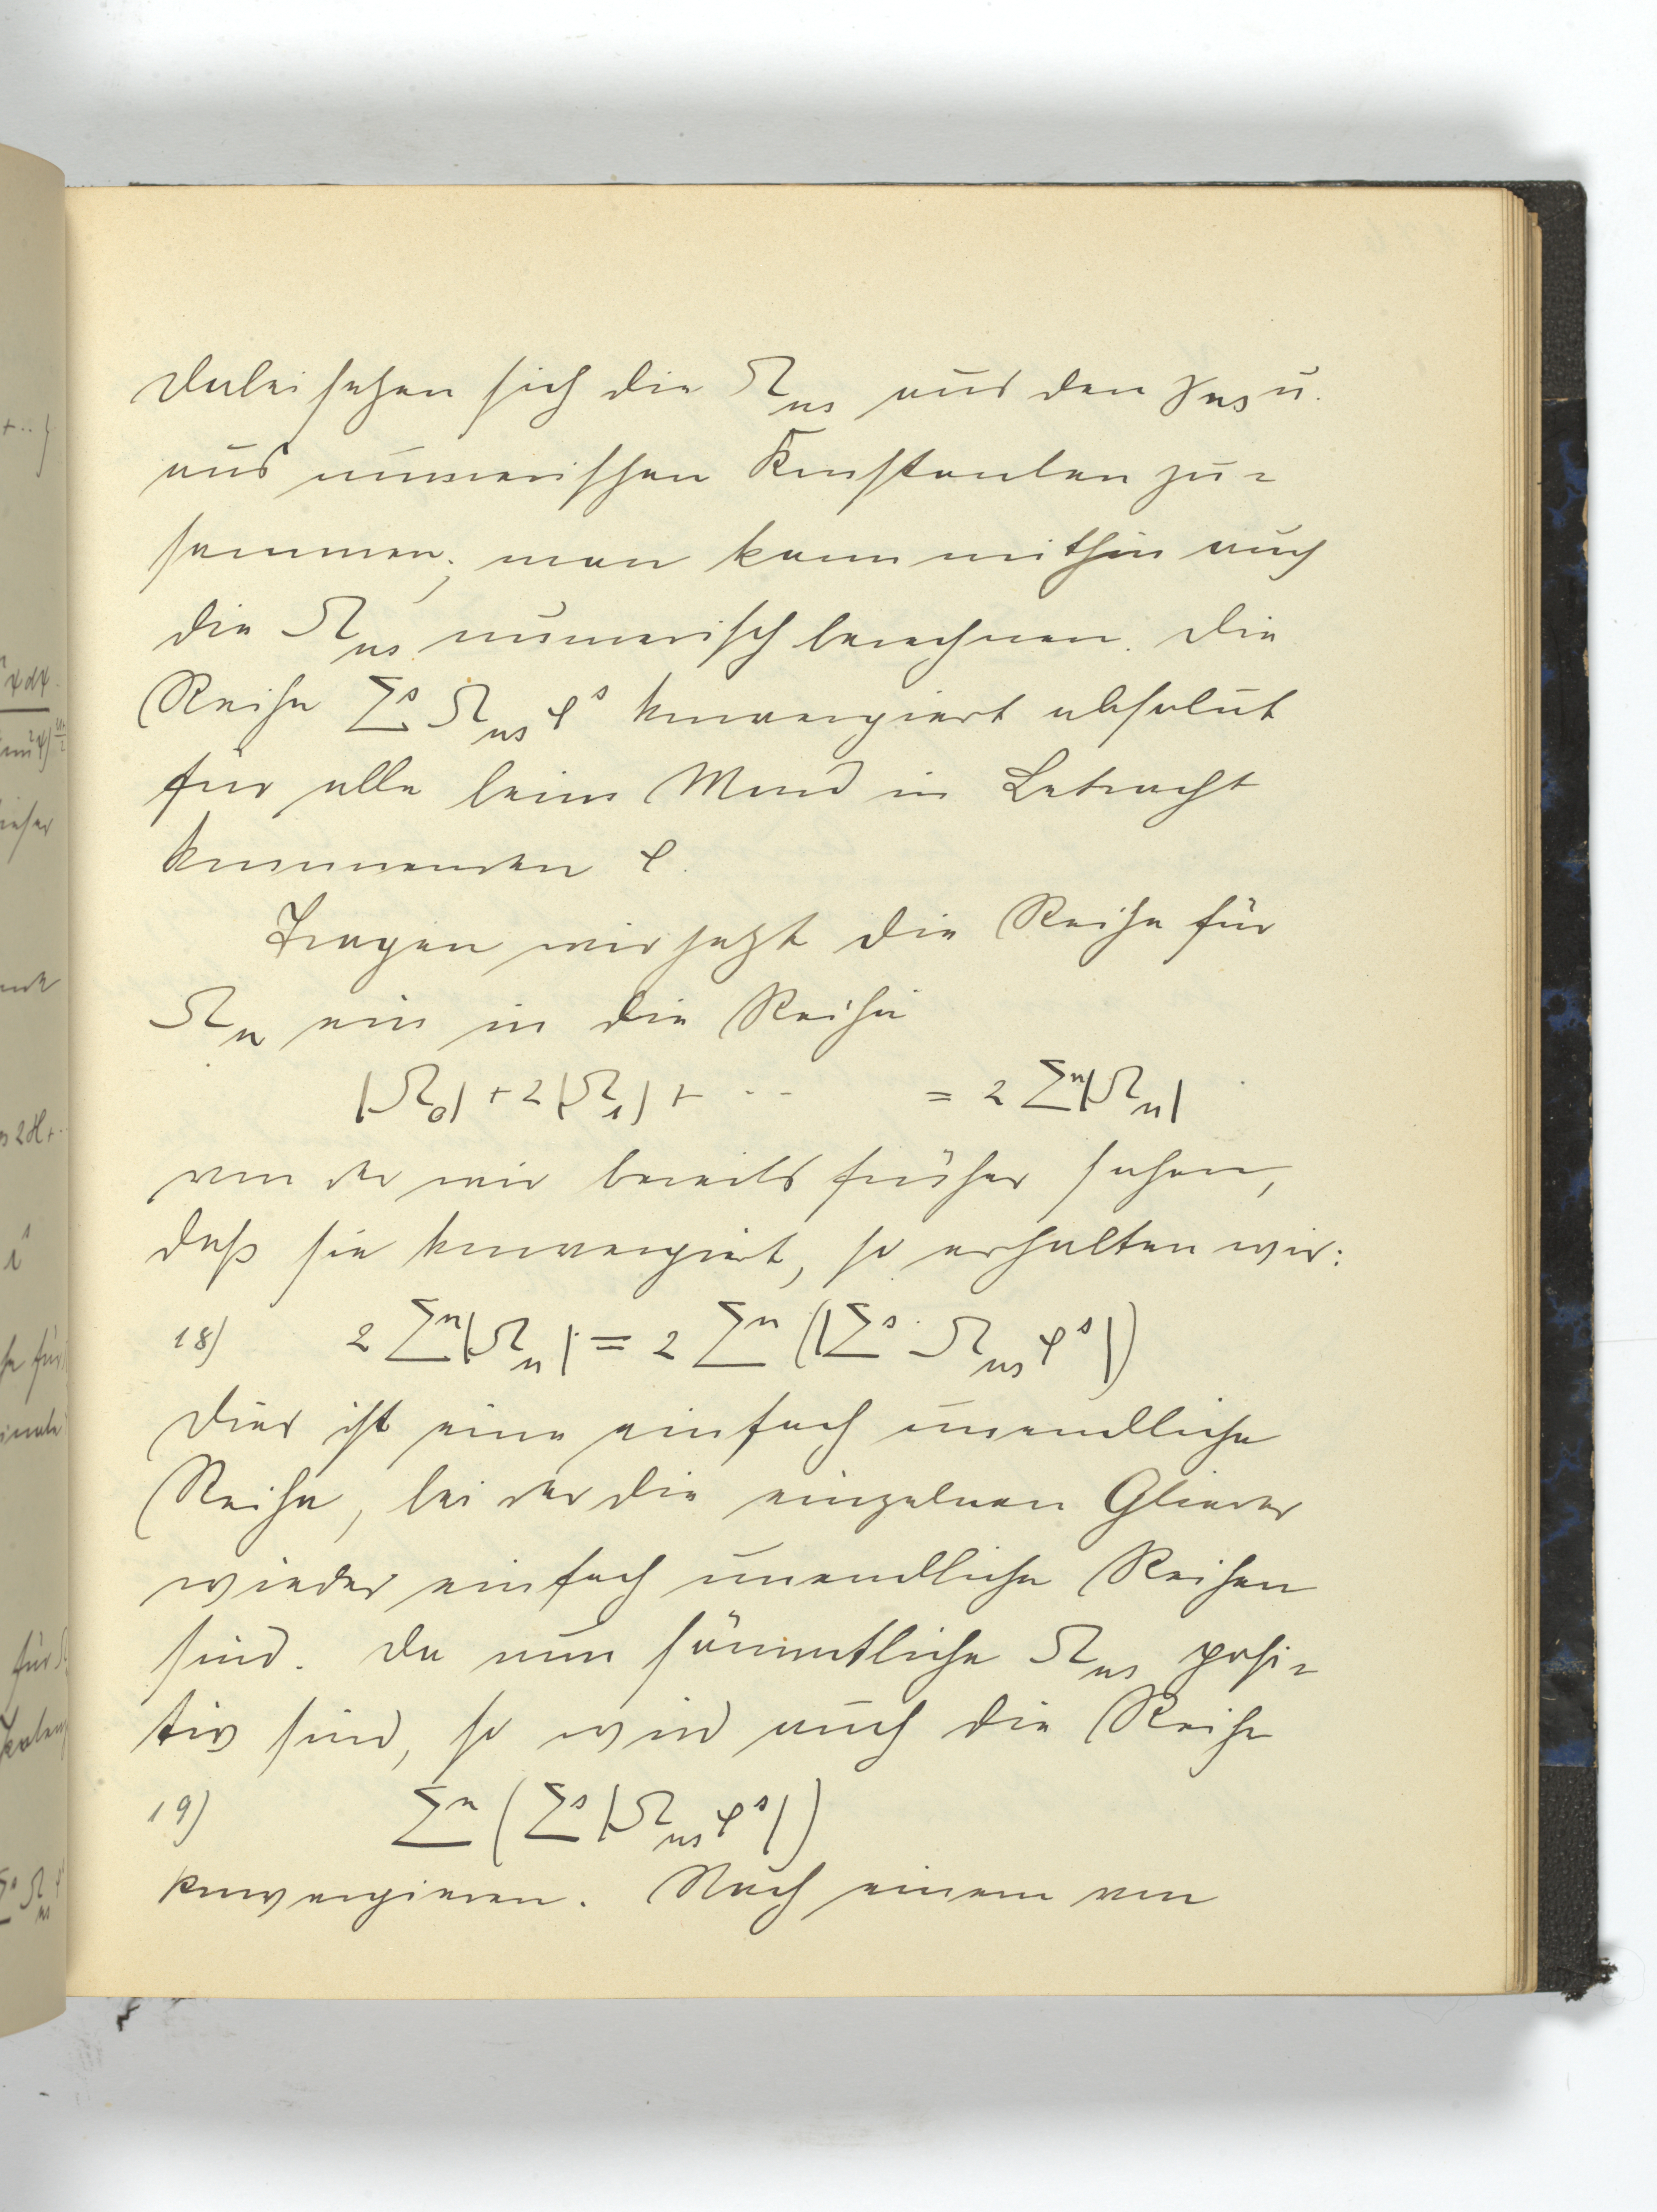 Dabei setzen sich die Ω_ns aus den γ_ns u.
aus numerischen Konstanten zu=
sammen; man kann mithin auch
die Ω_ns numerisch berechnen. Die
Reihe Σ^s Ω_ns φ^s konvergiert absolut
für alle beim Mond in Betracht
kommenden φ.
Tragen wir jetzt die Reihe für
Ω_n ein in die Reihe
|Ω_0| + 2|Ω_1| + ·· = 2 Σ^n |Ω_n|
von der wir bereits früher sahen,
daß sie konvergiert, so erhalten wir:
18) 2 Σ^n |Ω_n| = 2 Σ^n (|Σ^s Ω_ns φ^s|)
Dies ist eine einfach unendliche
Reihe, bei der die einzelnen Glieder
wieder einfach unendliche Reihen
sind. Da nun sämmtliche Ω_ns posi=
tiv sind, so wird auch die Reihe
19) Σ^n (Σ^s |Ω_ns φ^s|)
konvergieren. Nach einem von